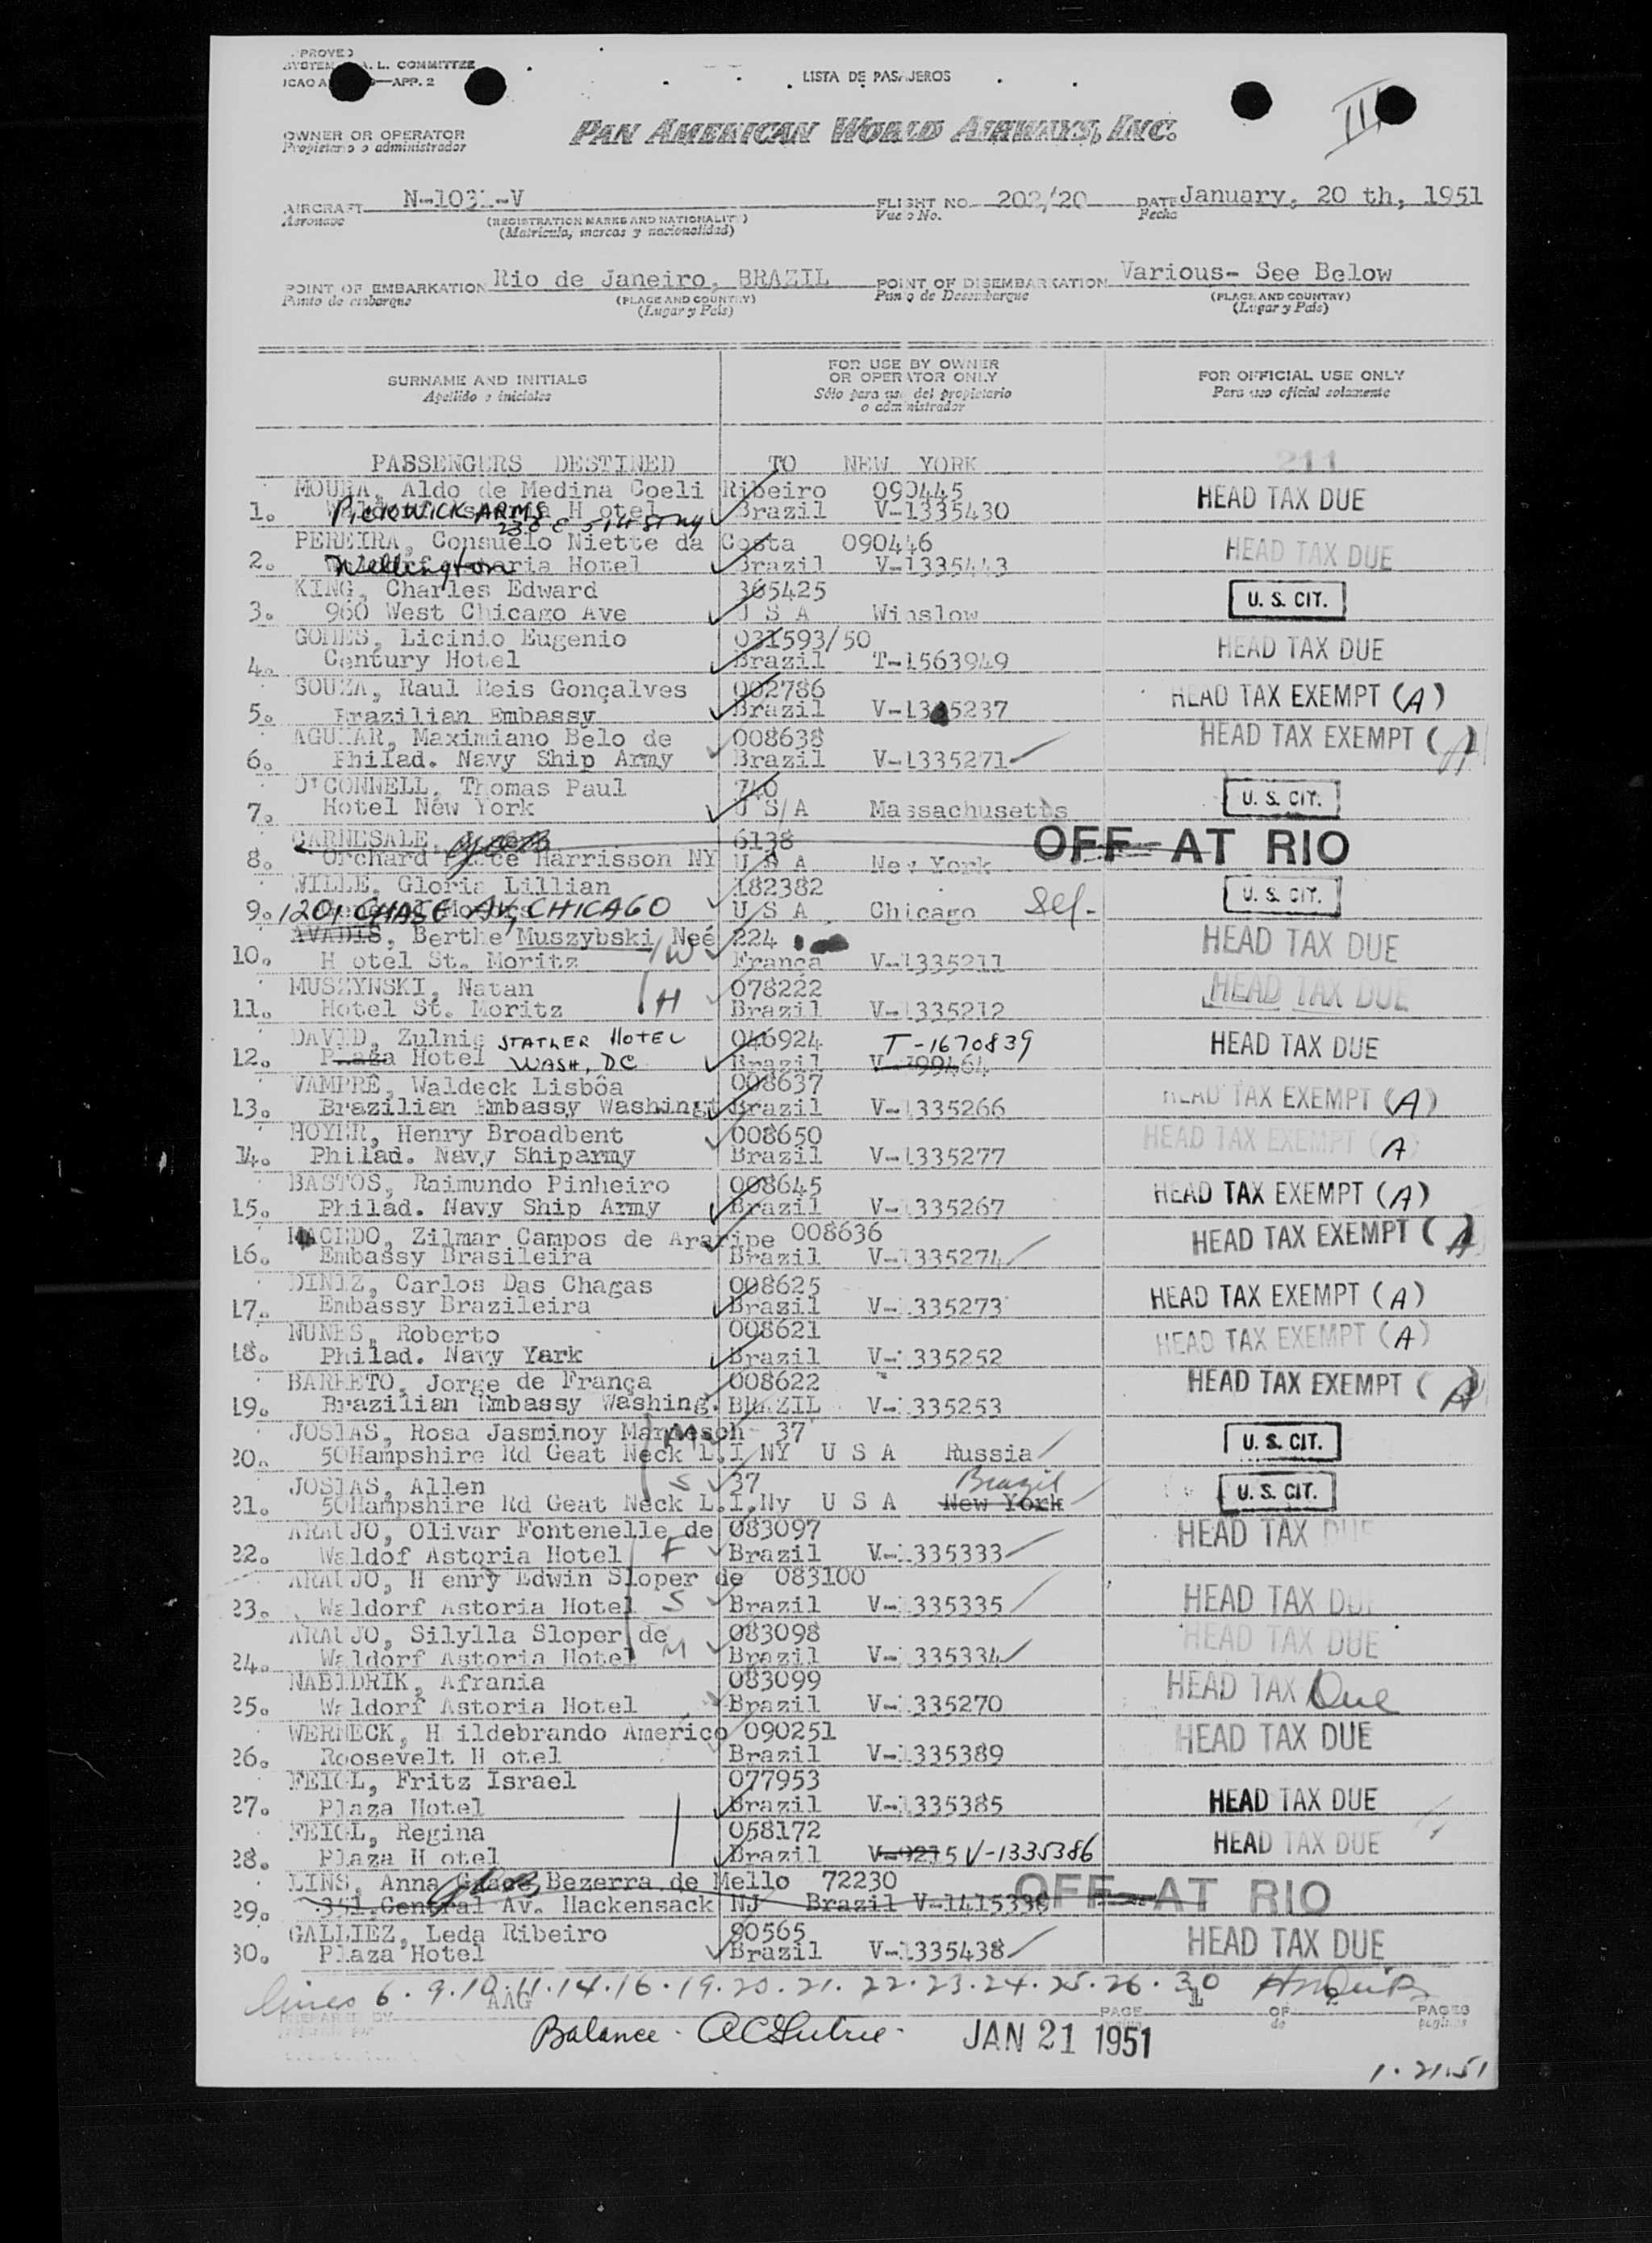 PROVED
SYSTEM A. L. COMMITTEE
ICAO A —APP. 2
LISTA DE PASAJEROS
III
OWNER OR OPERATOR
Propietario o administrador
PAN AMERICAN WORLD AIRWAYS, INC.
AIRCRAFT N-1031-V FLIGHT NO. 202/20 DATE January, 20 th, 1951
Aeronave (REGISTRATION MARKS AND NATIONALITY) Vuelo No. Fecha
(Matrícula, marcas y nacionalidad)
POINT OF EMBARKATION Rio de Janeiro, BRAZIL POINT OF DISEMBARKATION Various- See Below
Punto de embarque (PLACE AND COUNTRY) Punto de Desembarque (PLACE AND COUNTRY)
(Lugar y País) (Lugar y País)
SURNAME AND INITIALS FOR USE BY OWNER OR OPERATOR ONLY FOR OFFICIAL USE ONLY
Apellido e iniciales Sólo para uso del propietario o administrador Para uso oficial solamente
PASSENGERS DESTINED TO NEW YORK 211
MOURA, Aldo de Medina Coeli Ribeiro 090445 HEAD TAX DUE
1. PICKWICK ARMS H otel Brazil V-1335430
230 E 51st St NY
PEREIRA, Consuelo Niette da Costa 090446 HEAD TAX DUE
2. Wellington Hotel Brazil V-1335443
KING, Charles Edward 365425 U. S. CIT.
3. 960 West Chicago Ave U S A Winslow
GOMES, Licinio Eugenio 031593/50 HEAD TAX DUE
4. Century Hotel Brazil T-1563949
SOUZA, Raul Reis Gonçalves 002786 HEAD TAX EXEMPT (A)
5. Brazilian Embassy Brazil V-1335237
AGUIAR, Maximiano Belo de 008638 HEAD TAX EXEMPT (A)
6. Philad. Navy Ship Army Brazil V-1335271
O'CONNELL, Thomas Paul 740 U. S. CIT.
7. Hotel New York U S A Massachusetts
CARNESALE, 6138 OFF AT RIO
8. Orchard Place Harrisson NY U S A New York
WILLE, Gloria Lillian 182382 U. S. CIT.
9. 1201 CHASE AV, CHICAGO U S A Chicago Sef-
AVADIS, Berthe Muszybski Neé 224 HEAD TAX DUE
10. H otel St. Moritz W França V-1335211
MUSZYNSKI, Natan 078222 HEAD TAX DUE
11. Hotel St. Moritz H Brazil V-1335212
DAVID, Zulnie STATLER HOTEL 046924 T-1670839 HEAD TAX DUE
12. Plaza Hotel WASH, DC Brazil
VAMPRÉ, Waldeck Lisbôa 008637 HEAD TAX EXEMPT (A)
13. Brazilian Embassy Washingt Brazil V-1335266
HOYER, Henry Broadbent 008650 HEAD TAX EXEMPT (A)
14. Philad. Navy Shiparmy Brazil V-1335277
BASTOS, Raimundo Pinheiro 008645 HEAD TAX EXEMPT (A)
15. Philad. Navy Ship Army Brazil V-1335267
MACEDO, Zilmar Campos de Araripe 008636 HEAD TAX EXEMPT (A)
16. Embassy Brasileira Brazil V-1335274
DINIZ, Carlos Das Chagas 008625 HEAD TAX EXEMPT (A)
17. Embassy Brazileira Brazil V-1335273
NUNES, Roberto 008621 HEAD TAX EXEMPT (A)
18. Philad. Navy Yark Brazil V-1335252
BARRETO, Jorge de França 008622 HEAD TAX EXEMPT (A)
19. Brazilian Embassy Washing. BRAZIL V-1335253
JOSIAS, Rosa Jasminoy 37 U. S. CIT.
20. 50Hampshire Rd Geat Neck L.I NY U S A Russia
JOSIAS, Allen S 37 Brazil U. S. CIT.
21. 50Hampshire Rd Geat Neck L.I.Ny U S A New York
ARAUJO, Olivar Fontenelle de 083097 HEAD TAX DUE
22. Waldof Astoria Hotel F Brazil V-1335333
ARAUJO, H enry Edwin Sloper de 083100 HEAD TAX DUE
23. Waldorf Astoria Hotel S Brazil V-1335335
ARAUJO, Silylla Sloper de 083098 HEAD TAX DUE
24. Waldorf Astoria Hotel M Brazil V-1335334
NABIDRIK, Afrania 083099 HEAD TAX Due
25. Waldorf Astoria Hotel Brazil V-1335270
WERNECK, H ildebrando Américo 090251 HEAD TAX DUE
26. Roosevelt H otel Brazil V-1335389
FEIGL, Fritz Israel 077953 HEAD TAX DUE
27. Plaza Hotel Brazil V-1335385
FEIGL, Regina 058172 HEAD TAX DUE
28. Plaza H otel Brazil V-9275 V-1335386
LINS, Anna Grace Bezerra de Mello 72230 OFF AT RIO
29. 351 Central Av. Hackensack NJ Brazil V-1415338
GALLIEZ, Leda Ribeiro 90565 HEAD TAX DUE
30. Plaza Hotel Brazil V-1335438
lines 6.9.10.11.14.16.19.20.21.22.23.24.25.26.30
AAG 1
PREPARED BY PAGE OF PAGES
de páginas
Balance - JAN 21 1951
1.21.51